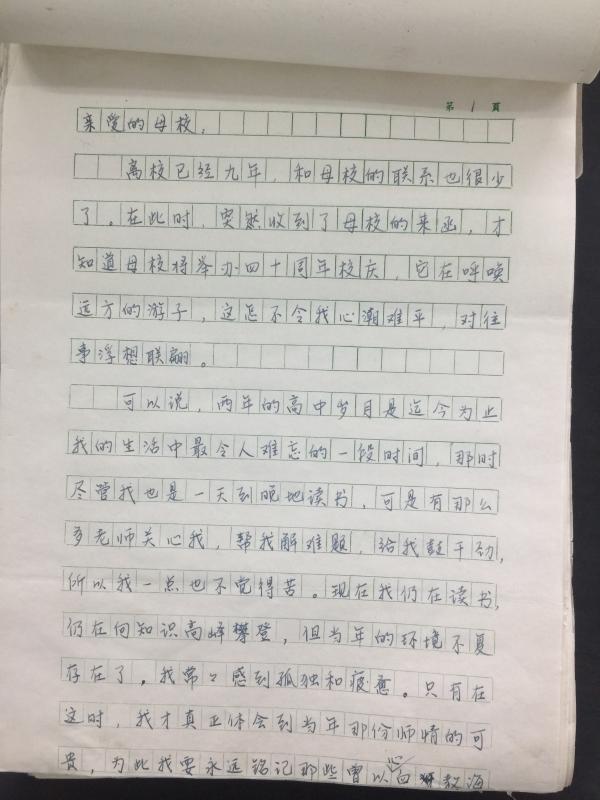 第 1 页
亲爱的母校，
离校已经九年，和母校的联系也很少
了。在此时，突然收到了母校的来函，才
知道母校将举办四十周年校庆，它在呼唤
远方的游子，这怎不令我心潮难平，对往
事浮想联翩。
可以说，两年的高中岁月是迄今为止
我的生活中最令人难忘的一段时间，那时
尽管我也是一天到晚地读书，可是有那么
多老师关心我，帮我解难题，给我鼓干劲，
所以我一点也不觉得苦。现在我仍在读书，
仍在向知识高峰攀登，但当年的环境不复
存在了。我常々感到孤独和疲惫。只有在
这时，我才真正体会到当年那份师情的可
贵，为此我要永远铭记那些曾以心血教诲